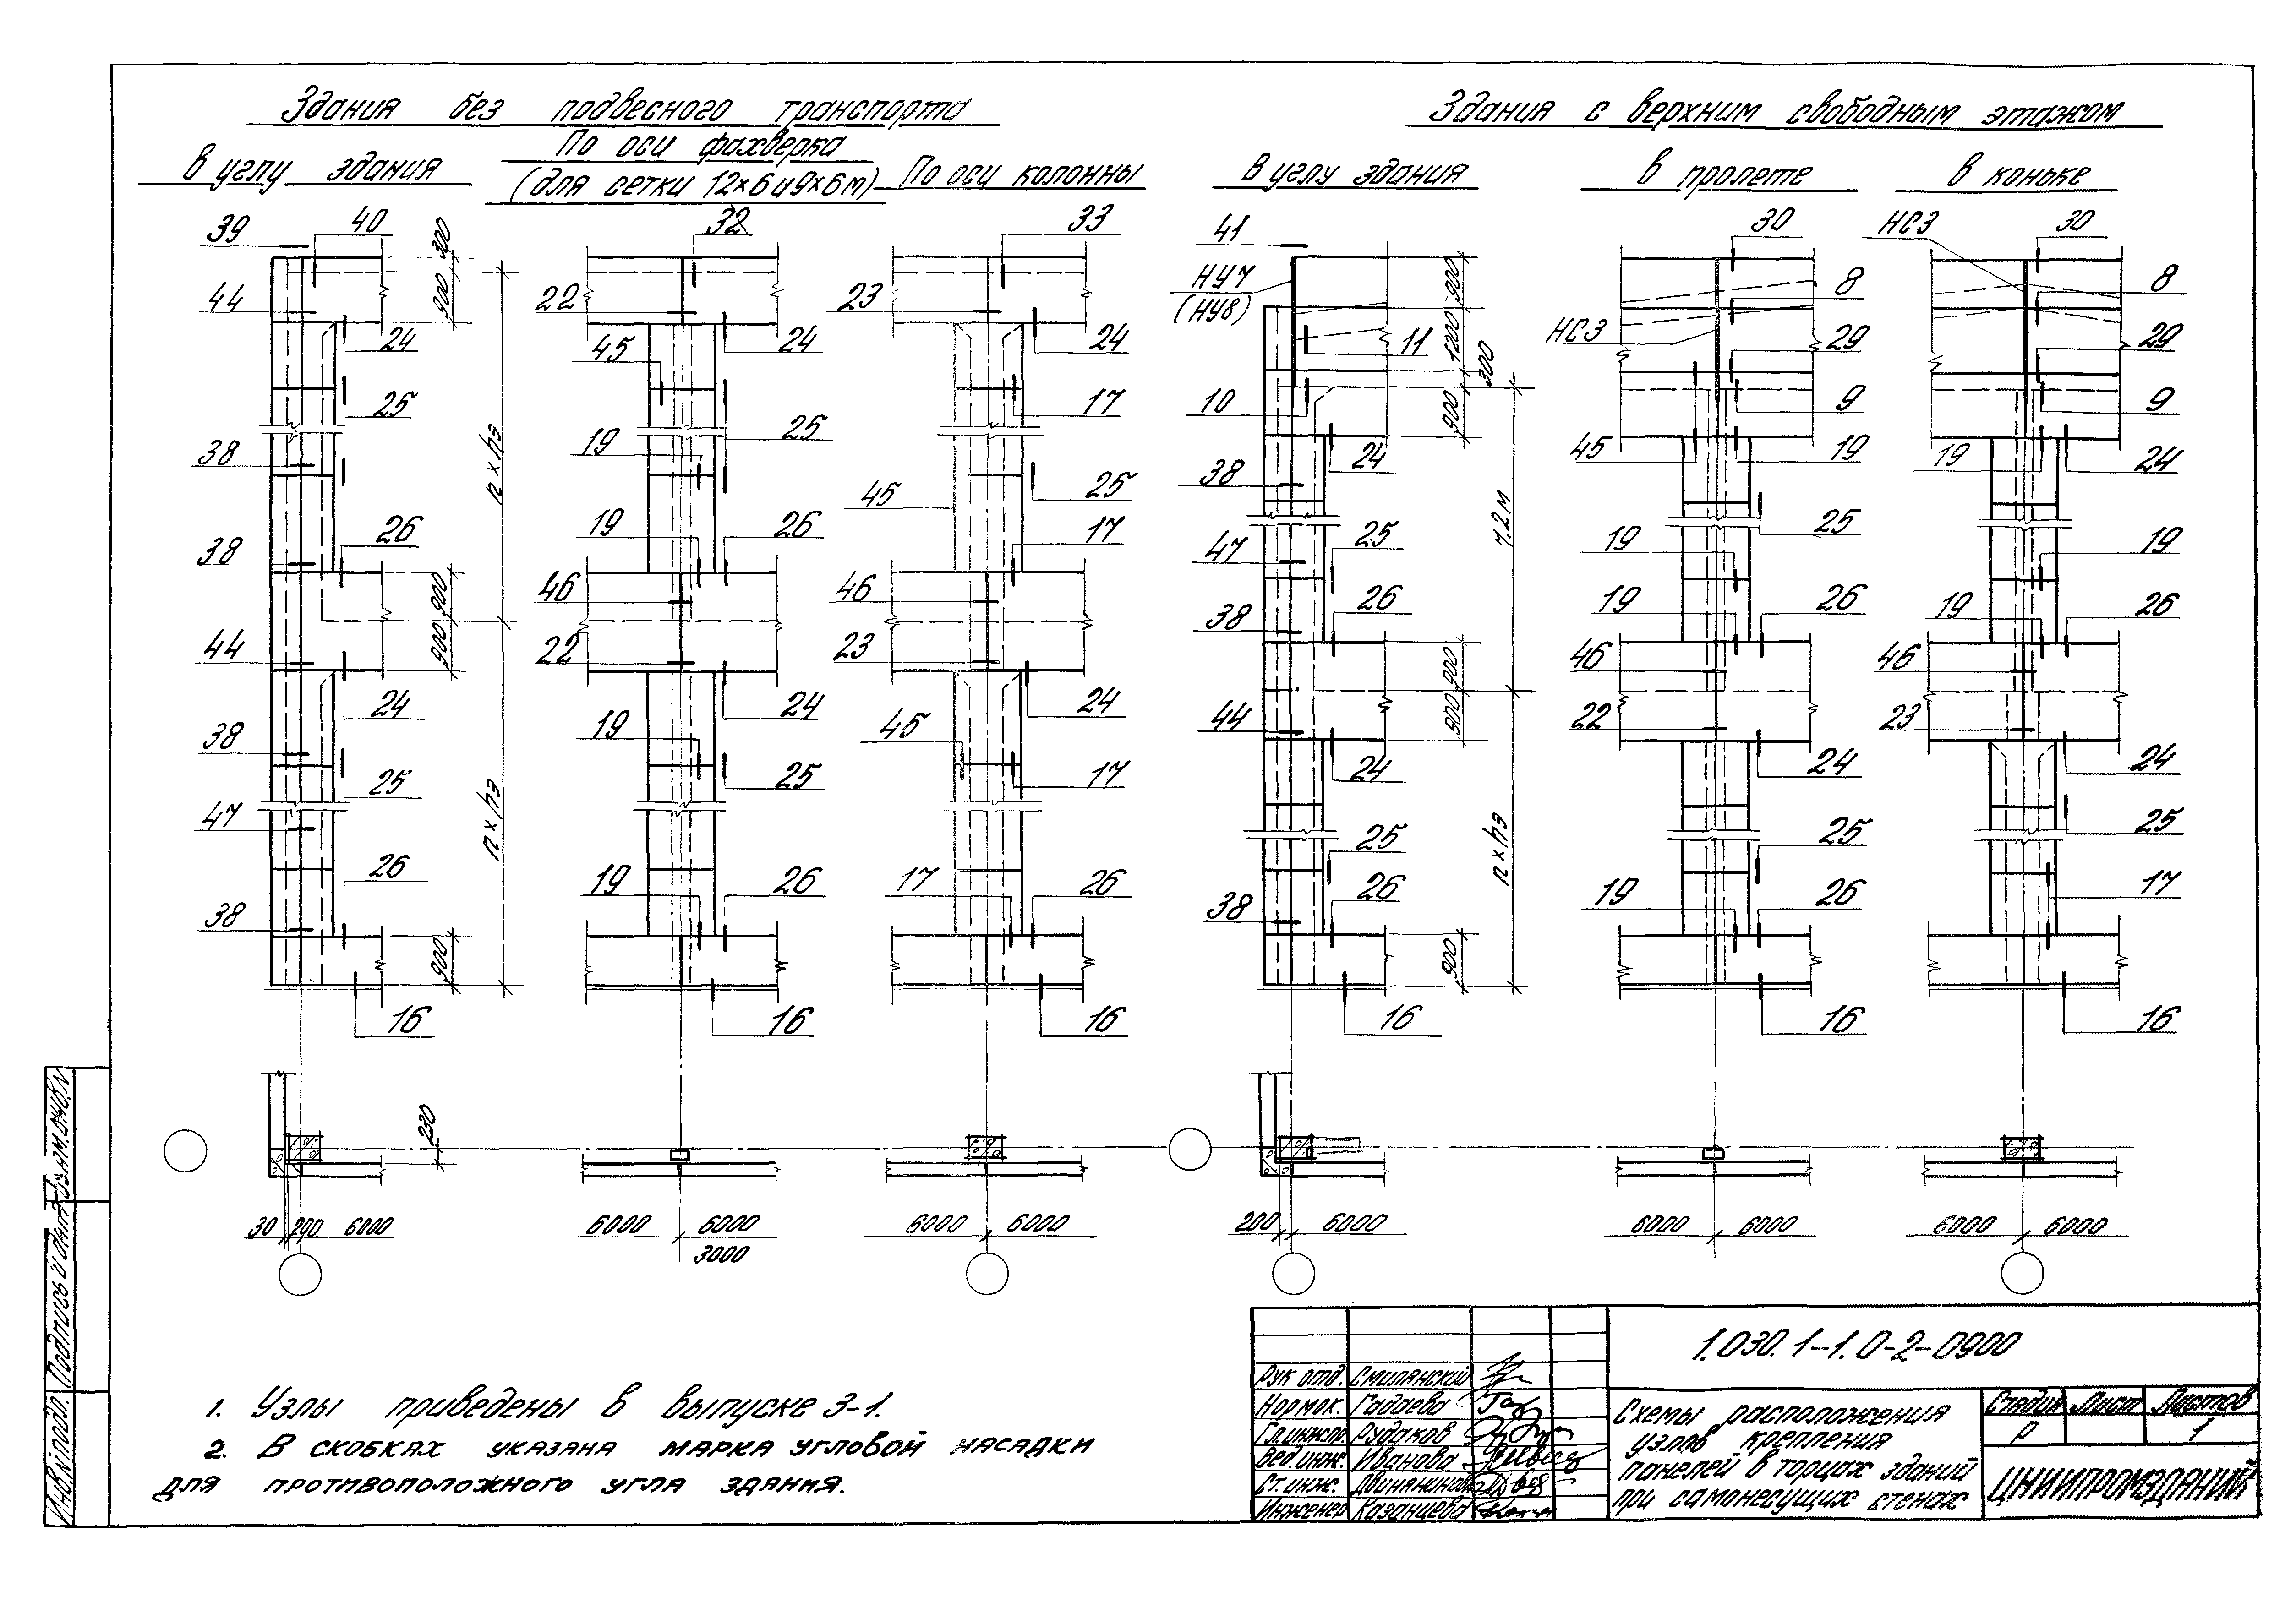 Здания без подвесного транспорта
В углу здания
По оси фахверка
(для сетки 12×6 и 9×6 м)
По оси колонны
39
40
44
24
25
38
26
38
44
24
38
25
47
26
38
16
300
900
n×hэ
900
900
n×hэ
900
32
22
24
45
25
19
19
26
46
22
24
19
25
19
26
16
33
23
24
17
25
45
17
46
23
24
45
17
17
26
16
230
30 200 6000
6000 6000
3000
6000 6000
Здания с верхним свободным этажом
В углу здания
В пролете
В коньке
41
НУ7
(НУ8)
11
10
24
38
25
47
26
38
44
24
25
26
38
16
900
1200
300
900
7,2м
900
900
n×hэ
900
30
8
НС3
29
9
45
19
25
19
19
26
46
22
24
25
19
26
16
НС3
30
8
29
9
19
24
19
19
26
46
23
24
25
17
16
200 6000
6000 6000
6000 6000
1. Узлы приведены в выпуске 3-1.
2. В скобках указана марка угловой насадки
для противоположного угла здания.
1.030.1-1.0-2-0900
Рук. отд. Смилянский
Нормок. Гадаева
Гл.инж.пр. Рудаков
Вед.инж. Иванова
Ст.инж.
Инженер Казанцева
Схемы расположения
узлов крепления
панелей в торцах зданий
при самонесущих стенах
Стадия Лист Листов
Р 1
ЦНИИПРОМЗДАНИЙ
Инв.№ подл. Подпись и дата Взам.инв.№